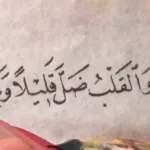 وَالْقَلْبُ ضَلَّ قَلِيْلًا